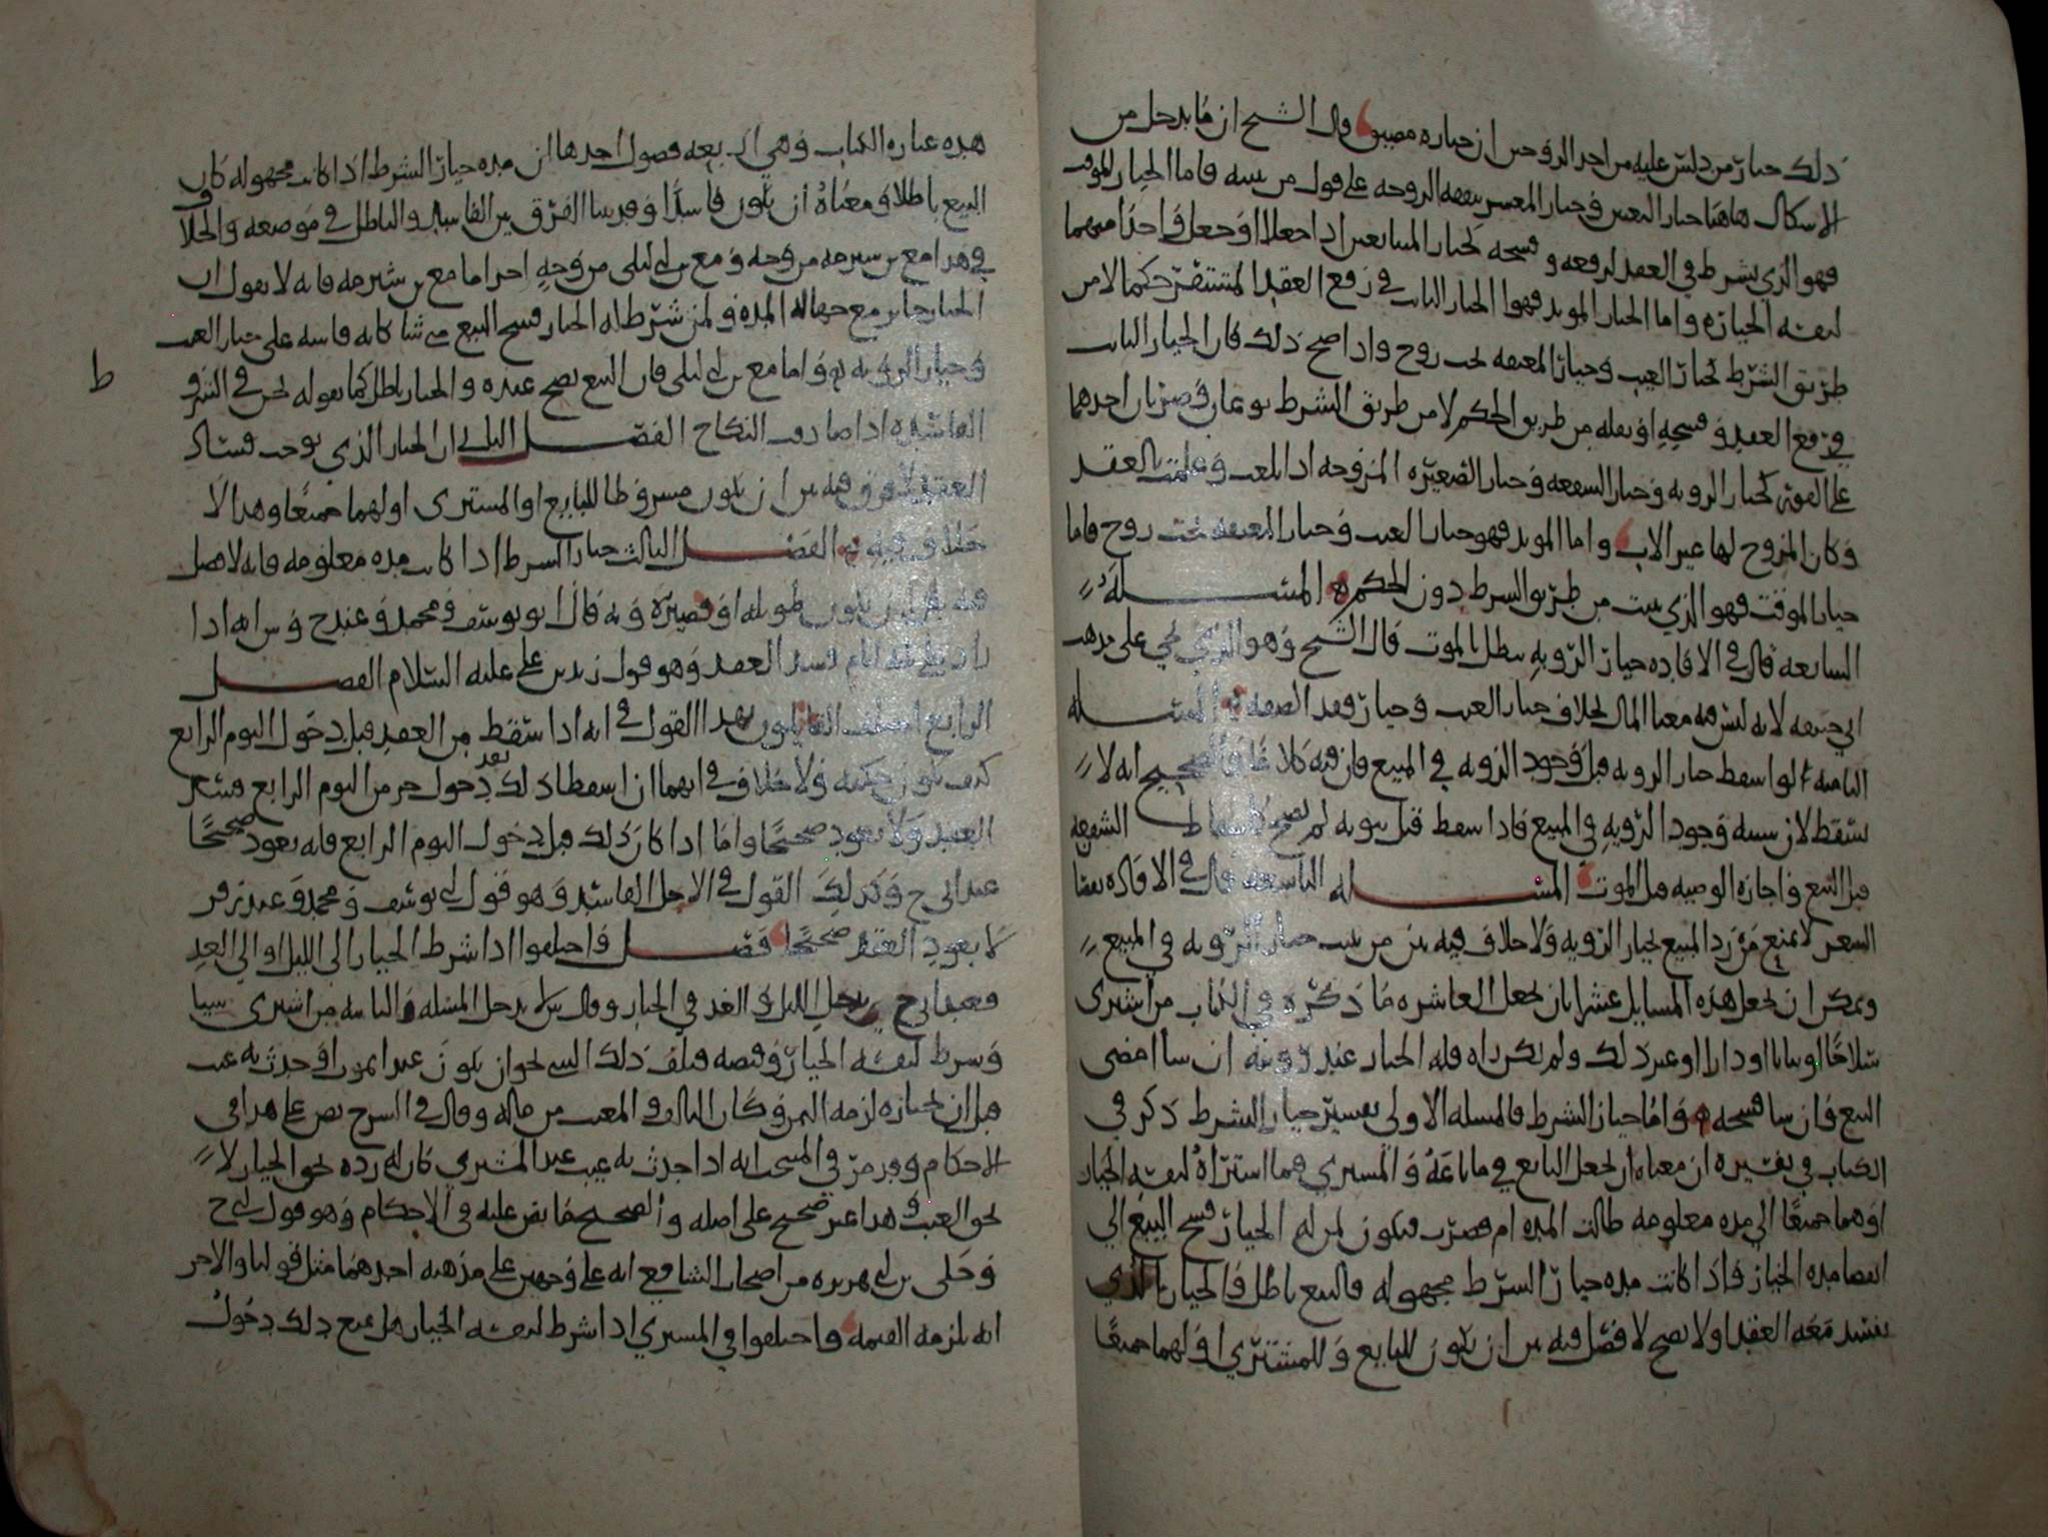 ذلك خيار من دلس عليه من احد الزوجين ان خياره مضيق قال الشيخ ان ما يدخل من
الاشكال هاهنا خيار العيب وخيار المعسر بنفقه الزوجه على قول من يثبته فاما الخيار الموقت
فهو الذي يشرط في العقد لرفعه وفسخه كخيار المتبايعين اذا جعلا او جعل واحدا منهما
لنفسه الخياره واما الخيار الموبد فهو الخيار الثابت في رفع العقد المستقر حكما لا من
طريق الشرط كخيار العيب وخيار المعتقه تحت زوج واذا صح ذلك فان الخيار الثابت
في رفع العقد وفسخه او نقله من طريق الحكم لا من طريق الشرط نوعان وضربان احدهما
على الفور كخيار الرويه وخيار الشفعه وخيار الصغيره المزوجه اذا بلغت وعلمت بالعقد
وكان المزوج لها غير الاب واما الموبد فهو خيار العيب وخيار المعتقه تحت زوج فاما
خيار الموقت فهو الذي يثبت من طريق الشرط دون الحكم المسئله
السابعه قال في الافاده خيار الرويه يبطل بالموت قال الشيخ وهو الذي يجي على مذهب
ابي حنيفه لانه ليس فيه معنا المال بخلاف خيار العيب وخيار فقد الصفه المسئله
الثامنه لو اسقط خيار الرويه قبل وجود الرويه في المبيع فان فيه كلاما والصحيح انه لا
يسقط لان سببه وجود الرويه في المبيع فاذا سقط قبل ثبوته لم يصح كاسقاط الشفعه
قبل البيع واجازه الوصيه قبل الموت المسئله التاسعه قال في الافاده نقصان
السعر لا يمنع من رد المبيع بخيار الرويه ولا خلاف فيه بين من يثبت خيار الرويه في المبيع
ويمكن ان نجعل هذه المسايل عشرا بان نجعل العاشره ما ذكره في الكتاب من اشترى
سلاحا او ثيابا او دارا او غير ذلك ولم يكن راه فله الخيار عند رويته ان شا امضى
البيع وان شا فسخه واما خيار الشرط فالمسله الاولى تفسير خيار الشرط ذكر في
الكتاب في تفسيره ان معناه ان يجعل البايع في ما باعه والمشتري فيما اشتراه لنفسه الخيار
او هما جميعا الى مده معلومه طالت المده ام قصرت فيكون لمن له الخيار فسخ البيع الى
انقضا مده الخيار فاذا كانت مده خيار الشرط مجهوله فالبيع باطل والخيار الذي
يفسد معه العقد ولا يصح لا فصل فيه بين ان يكون للبايع وللمشتري او لهما جميعا
هذه عباره الكتاب وهي اربعه فصول احدها ان مده خيار الشرط اذا كانت مجهوله كان
البيع باطلا ومعناه ان يكون فاسدا وقد بينا الفرق بين الفاسد والباطل في موضعه والخلاف
في هذا مع بن شبرمه من وجه ومع بن ابي ليلى من وجه اخر اما مع بن شبرمه فانه لا يقول ان
الخيار جايز مع جهاله المده ولمن شرط له الخيار فسخ البيع متى شا كانه قاسه على خيار العيب
وخيار الرويه واما مع بن ابي ليلى فان البيع يصح عنده والخيار باطل كما نقوله نحن في الشروط
الفاسده اذا صادفت النكاح الفصل الثاني ان الخيار الذي يوجب فساد
العقد لا فرق فيه بين ان يكون مشروطا للبايع او المشترى او لهما جميعا وهذا لا
خلاف فيه الفصل الثالث خيار الشرط اذا كانت مده معلومه فانه لا فصل
فيه بين ان يكون طويله او قصيره وبه قال ابو يوسف ومحمد وعند ح وش انه اذا
زاد على ثلثه ايام فسد العقد وهو قول زيد بن علي عليه السلام الفصل
الرابع اختلف القايلون بهذا القول في انه اذا سقط من العقد قبل دخول اليوم الرابع
كيف يكون حكمه ولا خلاف في انهما ان اسقطا ذلك بعد دخول جز من اليوم الرابع فسد
العقد ولا يعود صحيحا واما اذا كان ذلك قبل دخول اليوم الرابع فانه يعود صحيحا
عند ابي ح وكذلك القول في الاجل الفاسد وهو قول ابي يوسف ومحمد وعند زفر
لا يعود العقد صحيحا فصل واختلفوا اذا شرط الخيار الى الليل او الى الغد
فعند ابي ح يدخل الليل والغد في الخيار وقال ش لا يدخل المسله الثانيه من اشترى شيا
وشرط لنفسه الخيار وقبضه فتلف ذلك الشي نحو ان يكون عبدا يموت او حدث به عيب
قبل ان يختاره لزمه الثمن وكان التالف والمعيب من ماله وقال في الشرح نص على هذا في
الاحكام وقد مر في المنتخب انه اذا حدث به عيب عند المشتري كان له رده نحو الخيار لا
نحو العيب وهذا غير صحيح على اصله والصحيح ما نص عليه في الاحكام وهو قول ابي ح
وحكى بن ابي هريره من اصحاب الشافعي انه على وجهين على مذهبه احدهما مثل قولنا والاخر
انه يلزمه القيمه واختلفوا في المشتري اذا شرط لنفسه الخيار هل يمنع ذلك دخول
ط